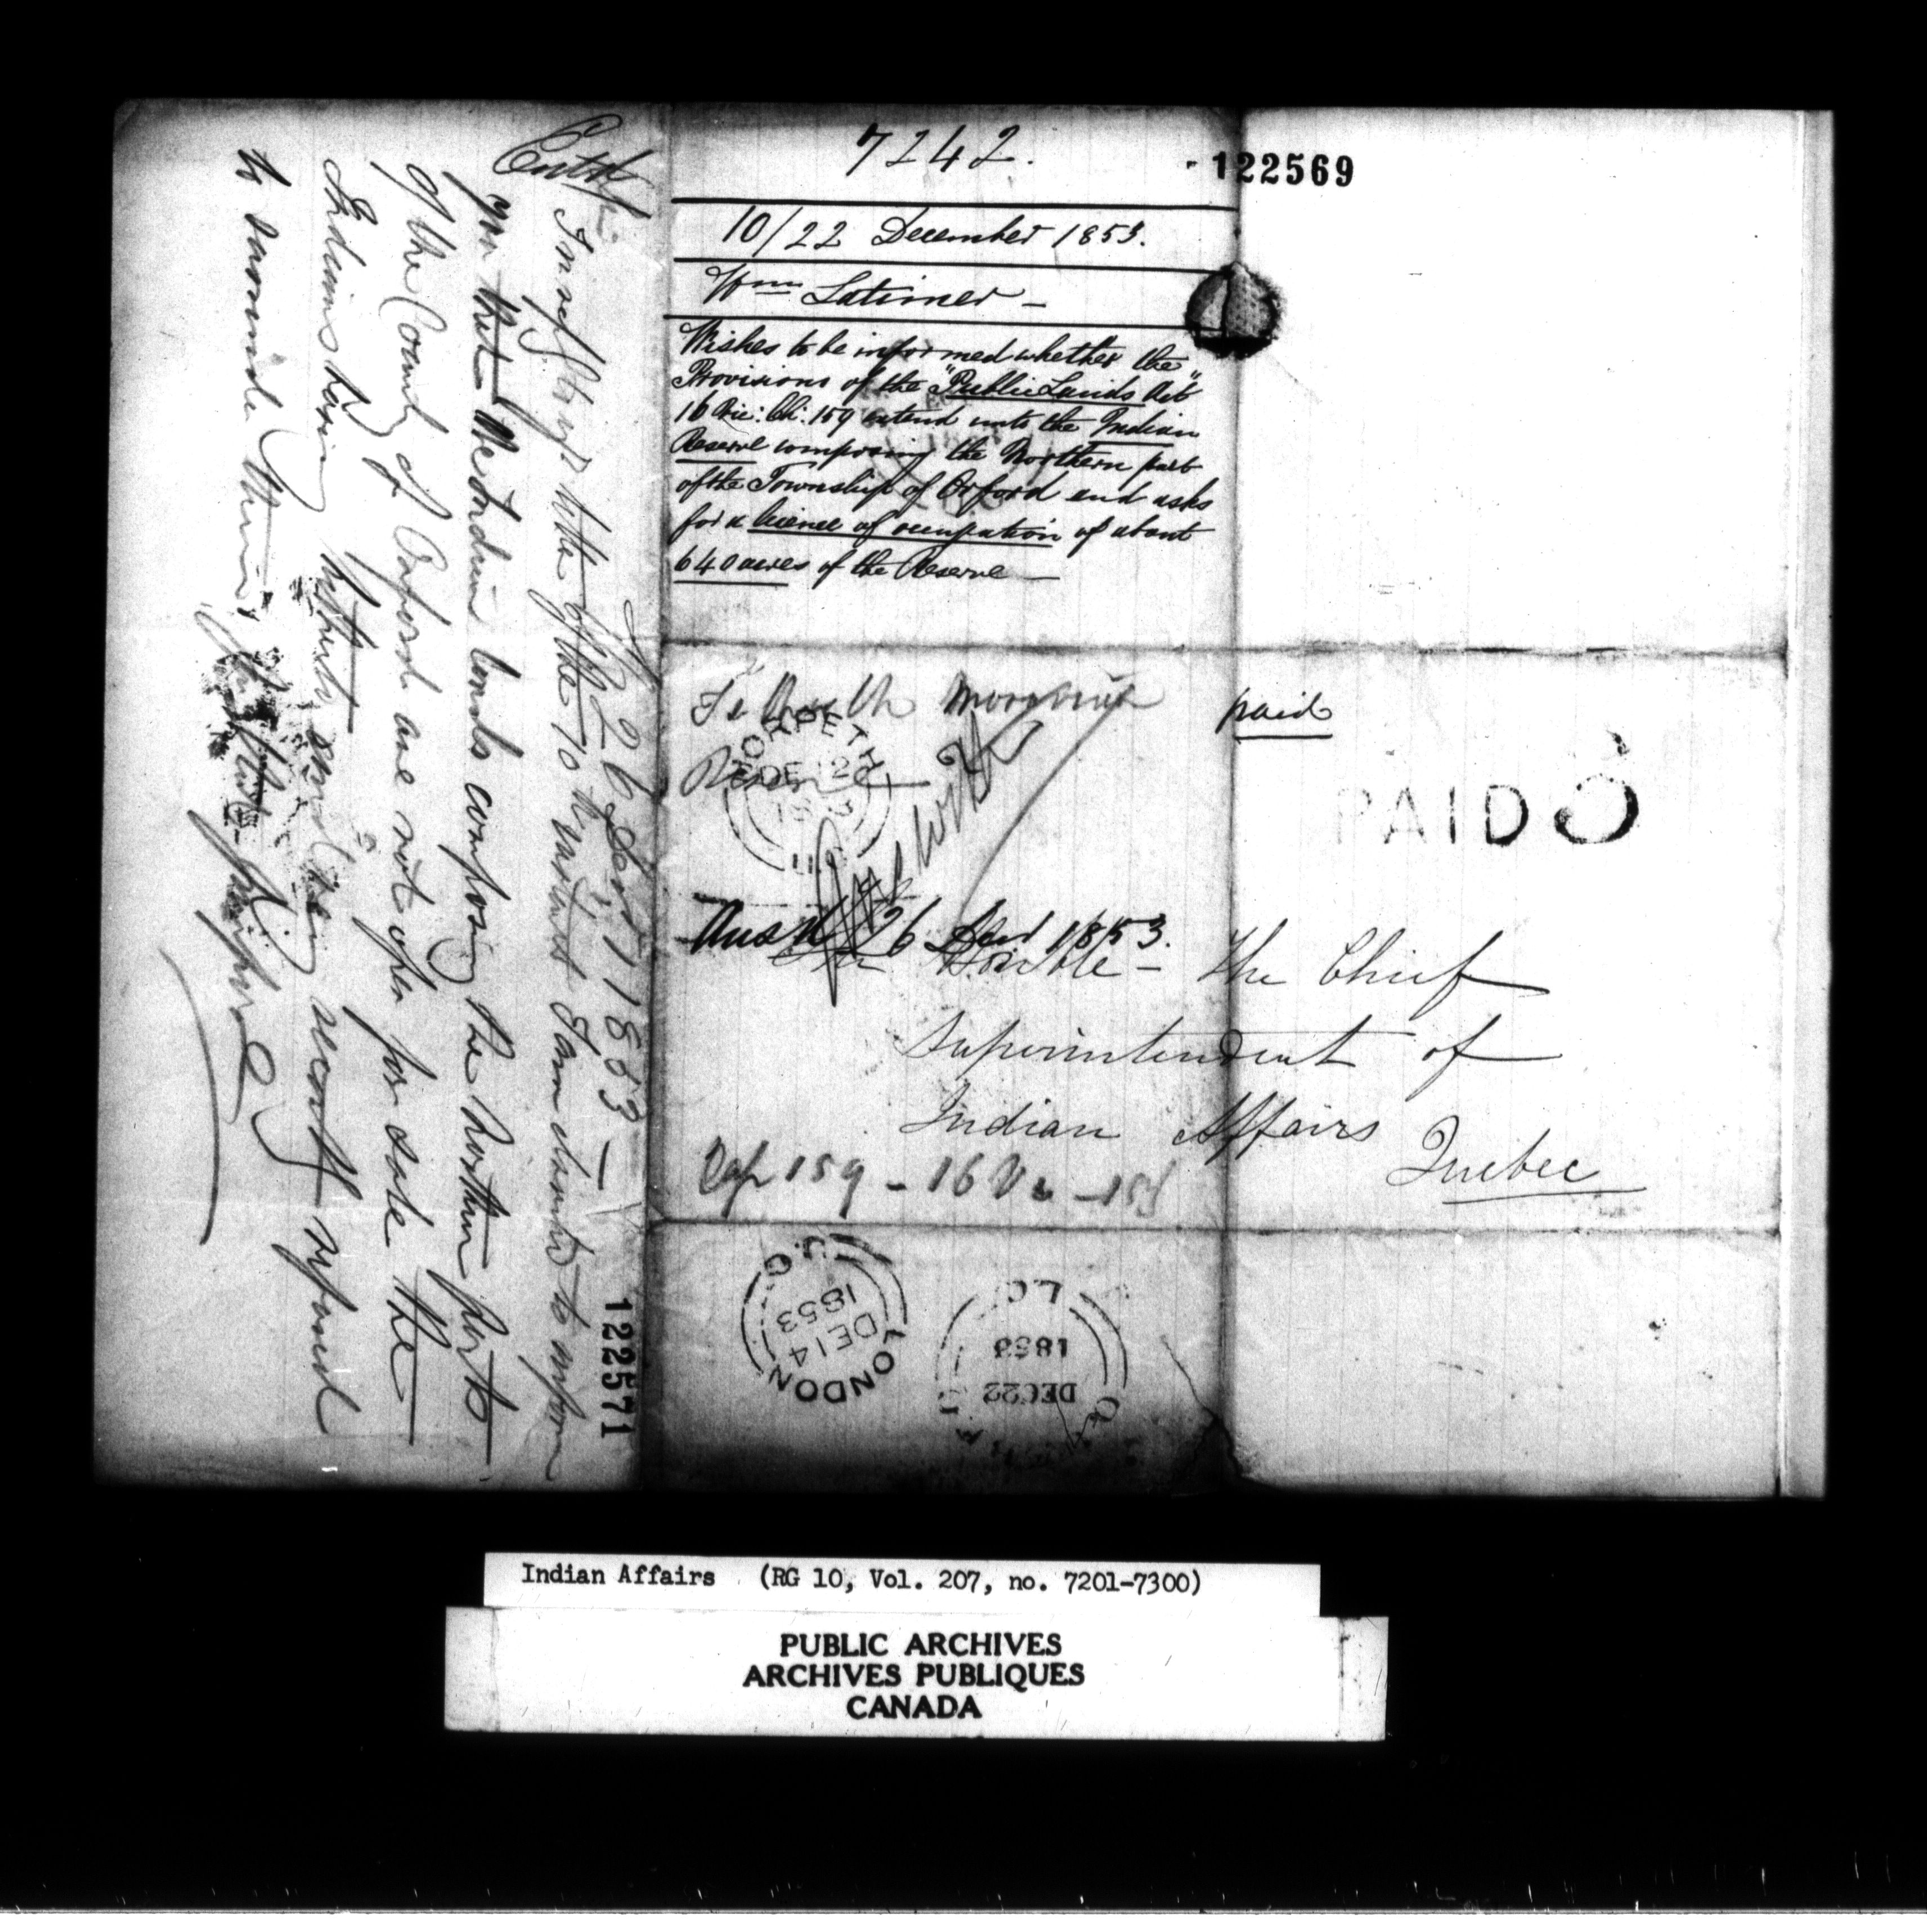 7242.
122569
10/22 December 1853.
Wm Latimer —
Wishes to be informed whether the
Provisions of the "Public Lands Act"
16 Vic: Ch: 159 extend unto the Indian
Reserve composing the Northern part
of the Township of Orford and asks
for a licence of occupation of about
640 acres of the Reserve —
Moravian
Reserve
MORPETH
DE 12
1853
U.C
paid
PAID 3
Ansd 26 Decr 1853.
The Honble — The Chief
Superintendent of
Indian Affairs
Quebec
Cap 159 - 16 Vic
LONDON
DE 14
1853
U.C
DEC 22
1853
L.C
26 Decr 1853 —
In reply to your letter of the 10th instant I am directed to inform
you that the Indian lands composing the northern parts
of the County of Orford are not open for sale the
Indians having hitherto and even recently refused
to surrender them
122571
Indian Affairs (RG 10, Vol. 207, no. 7201-7300)
PUBLIC ARCHIVES
ARCHIVES PUBLIQUES
CANADA